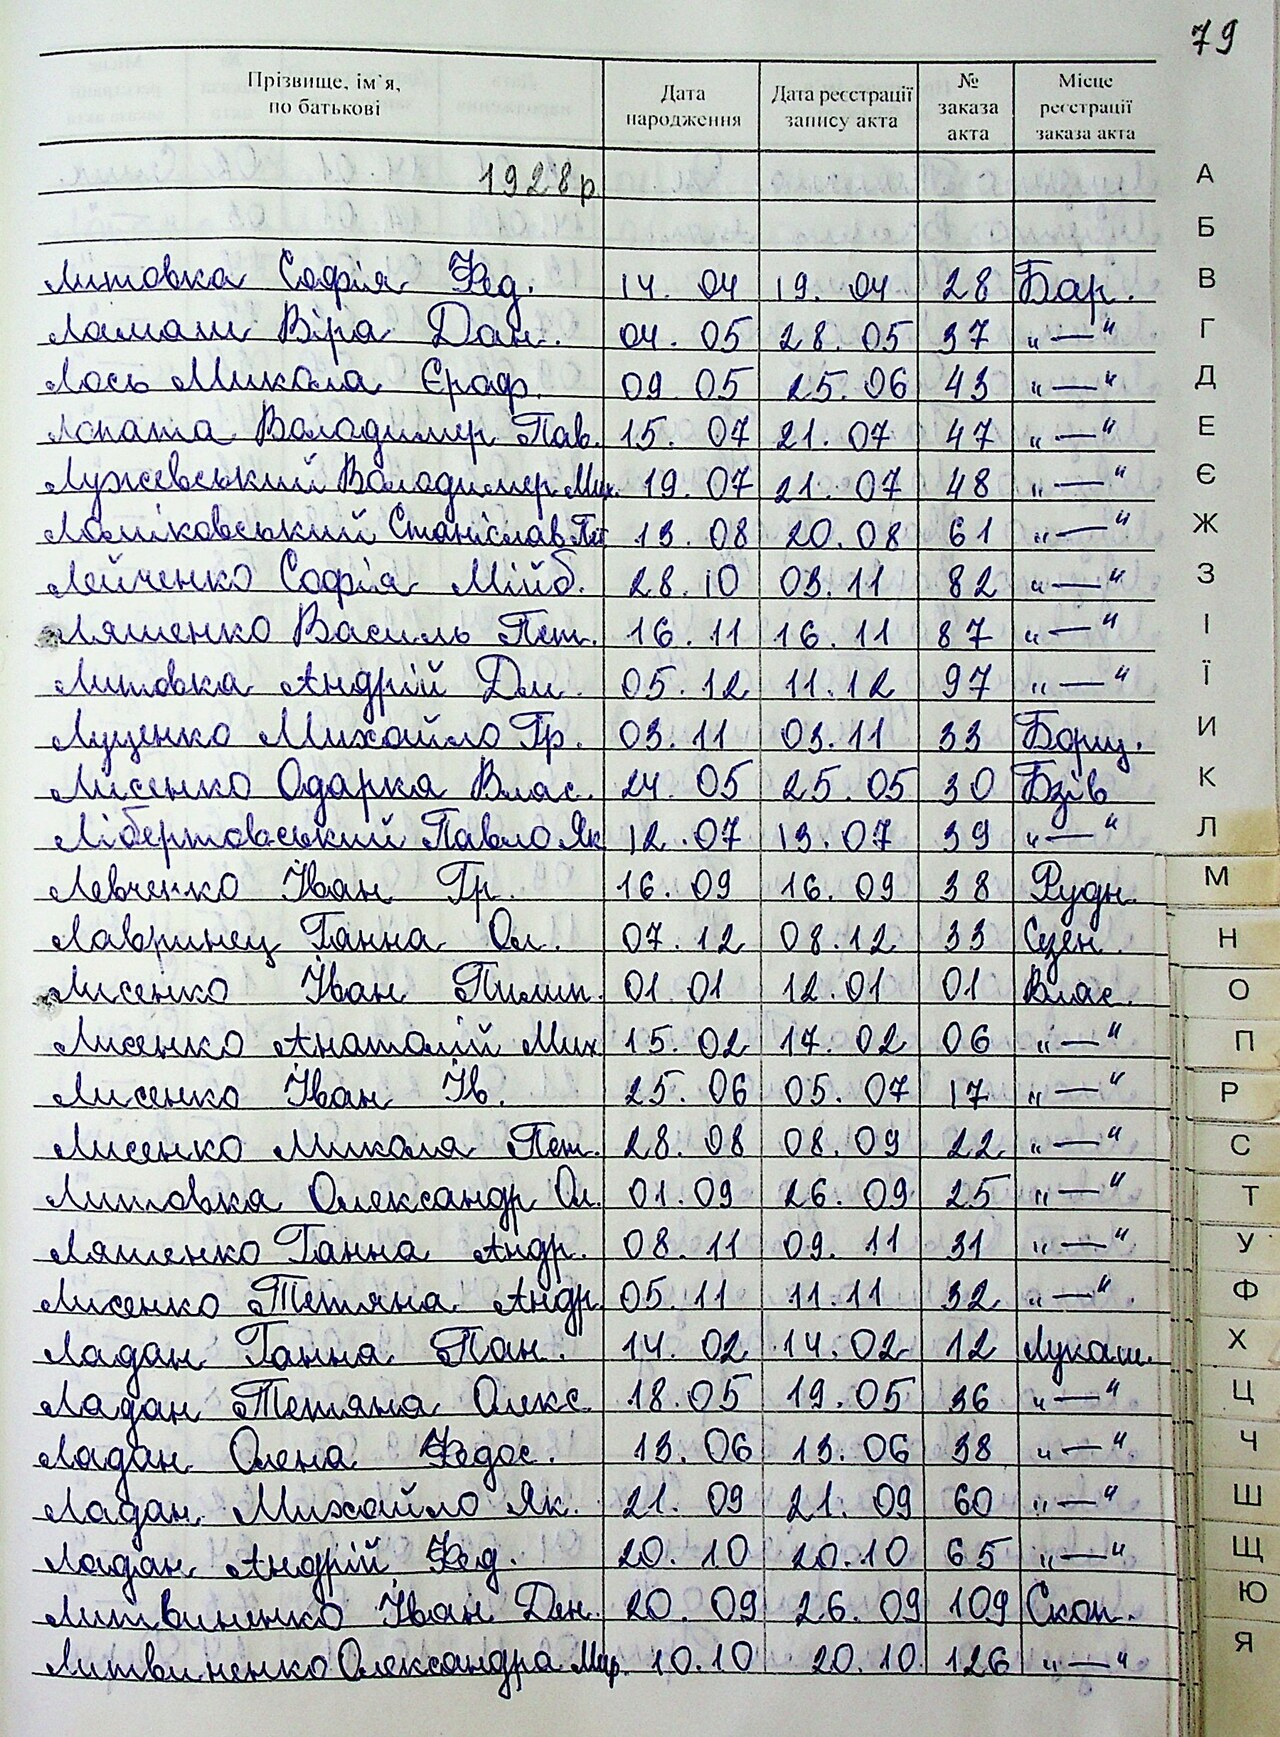 79
Прізвище, ім`я, по батькові | Дата народження | Дата реєстрації запису акта | № заказа акта | Місце реєстрації заказа акта
1928 р.
Литовка Софія Фед. 14. 04 19. 04 28 Бар.
Ламаш Віра Дан. 04. 05 28. 05 37 „—“
Лось Микола Єраф. 09 05 25. 06 43 „—“
Лопата Володимир Пав. 15. 07 21. 07 47 „—“
Лужевський Володимир Мих. 19. 07 21. 07 48 „—“
Ломіковський Станіслав Пет 13. 08 20. 08 61 „—“
Лейченко Софія Мійб. 28. 10 03. 11 82 „—“
Ляшенко Василь Пет. 16. 11 16. 11 87 „—“
Литовка Андрій Дм. 05. 12 11. 12 97 „—“
Луценко Михайло Гр. 03. 11 03. 11 33 Борщ.
Лисенко Одарка Влас. 24. 05 25. 05 30 Бзів
Лібертовський Павло Як 12. 07 13. 07 39 „—“
Левченко Іван Гр. 16. 09 16. 09 38 Рудн.
Лавринец Ганна Ол. 07. 12 08. 12 33 Сезен.
Лисенко Іван Пилип. 01. 01 12. 01 01 Влас.
Лисенко Анатолій Мих 15. 02 17. 02 06 „—“
Лисенко Іван Ів. 25. 06 05. 07 17 „—“
Лисенко Микола Пет. 28. 08 08. 09 22 „—“
Литовка Олександр Ол. 01. 09 26. 09 25 „—“
Ляшенко Ганна Андр. 08. 11 09. 11 31 „—“
Лисенко Тетяна Андр. 05. 11 11. 11 32 „—“
Ладан Ганна Пан. 14. 02 14. 02 12 Лукаш.
Ладан Тетяна Олекс. 18. 05 19. 05 36 „—“
Ладан Олена Федос. 13. 06 13. 06 38 „—“
Ладан Михайло Як. 21. 09 21. 09 60 „—“
Ладан Андрій Фед. 20. 10 20. 10 65 „—“
Литвиненко Іван Дан. 20. 09 26. 09 109 Скоп.
Литвиненко Олександра Мир. 10. 10 20. 10 126 „—“
А
Б
В
Г
Д
Е
Є
Ж
З
І
Ї
И
К
Л
М
Н
О
П
Р
С
Т
У
Ф
Х
Ц
Ч
Ш
Щ
Ю
Я